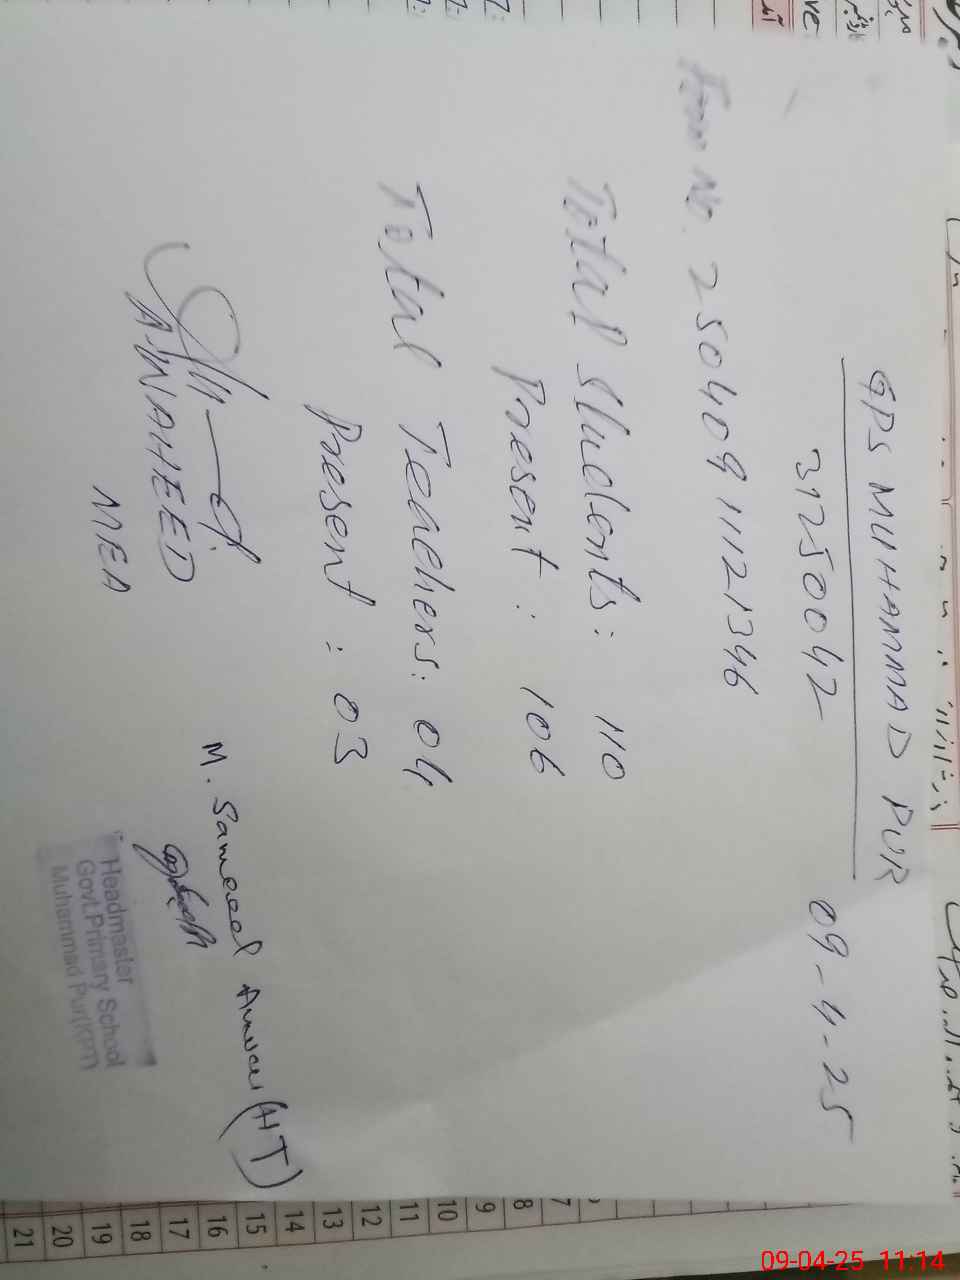 GPS MUHAMMAD PUR
31250042
09-4-25
Form No. 25040911121346
Total Students: 110
Present: 106
Total Teachers: 04
Present: 03
A. WAHEED
MEA
M. Sameed Anwar (HT)
Headmaster
Govt.Primary School
Muhammad Pur(KPT)
7
8
9
10
11
12
13
14
15
16
17
18
19
20
21
09-04-25 11:14